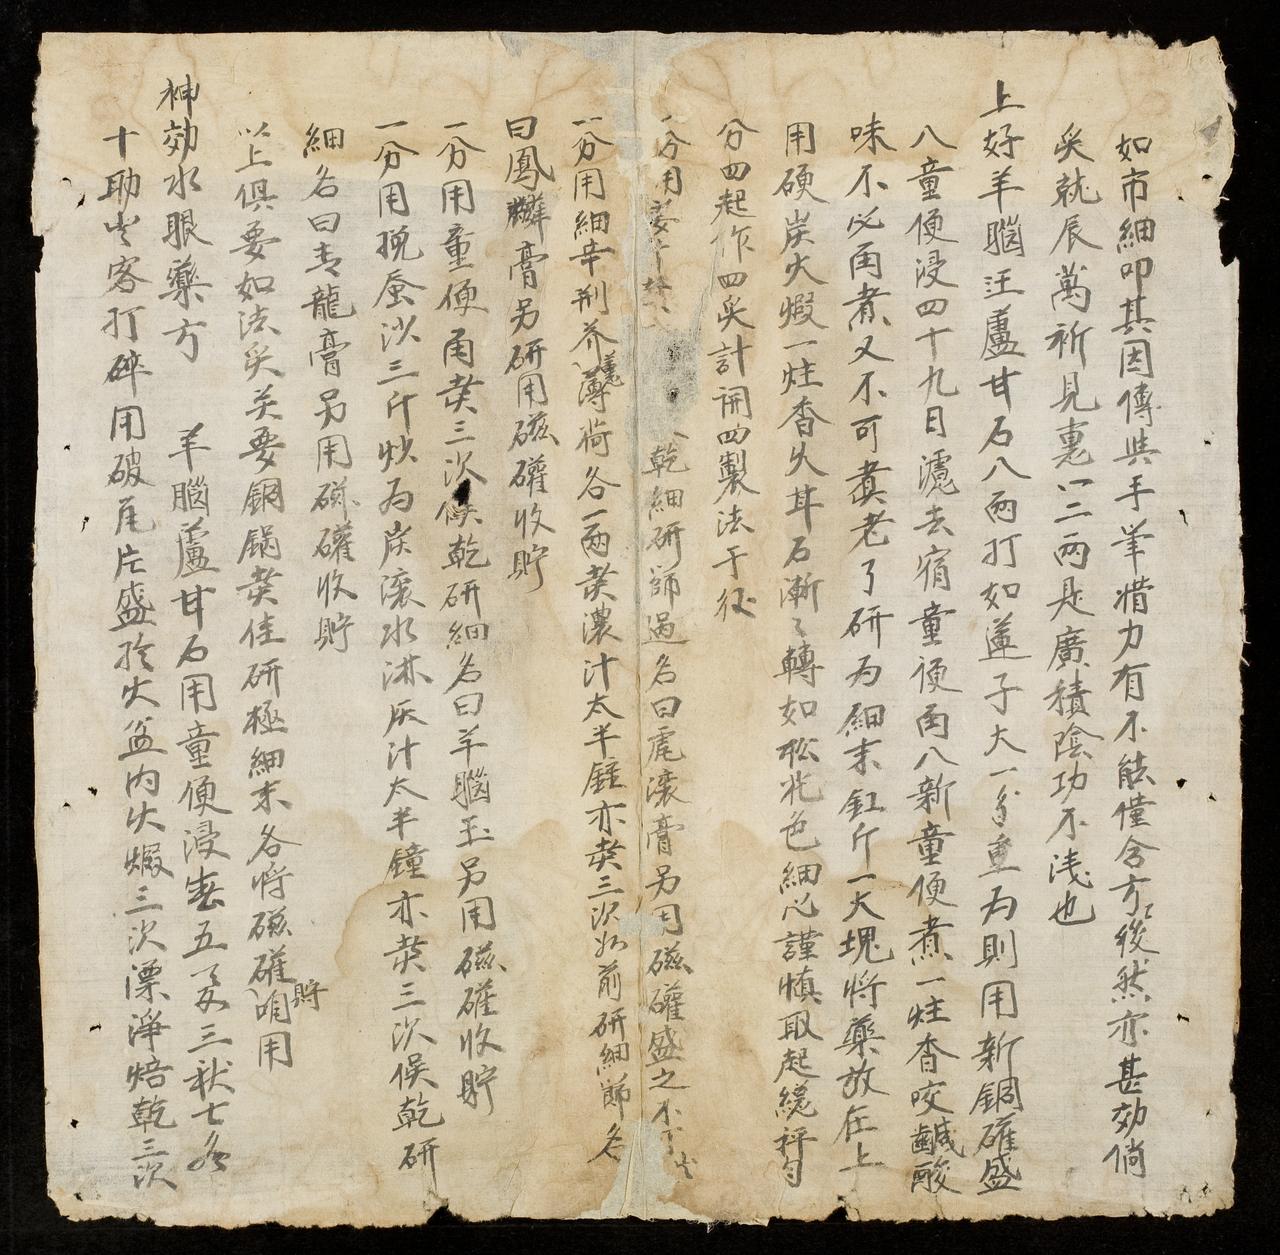 如市細叩其因傳與手筆惜力有不能僅含方後然亦甚効倘
炙就辰萬祈見惠一二両是廣積陰功不浅也
上好羊腦汪蘆甘石八両打如蓮子大一分重為則用新銅確盛
八童便浸四十九日濾去宿童便再八新童便煮一炷香咬鹹酸
味不必再煮又不可煮老了研為細末缸斤一大塊将藥放在上
用硬炭火煆一炷香久其石漸々轉如松花色細心謹慎取起纔秤勻
分四起作四炙計開四製法于後
一分用姜 乾細研篩過名曰虎滾膏另用磁礶盛之
一分用細辛荆芥薄荷各一両煑濃汁大半鍾亦煑三次如前研細篩名
曰鳳麟膏另研用磁礶收貯
一分用童便再煑三次候乾研細名曰羊腦玉另用磁礶收貯
一分用晚蚕沙三斤炒為炭滾水淋灰汁大半鐘亦煑三次候乾研
細名曰青龍膏另用磁礶收貯
以上俱要如法炙 要銅鍋煑佳研極細末各将磁礶貯用
神効水眼藥方 羊腦蘆甘石用童便浸春五夏三秋七冬
十 打碎用破瓦片盛於火盆内火煆三次漂淨焙乾三次